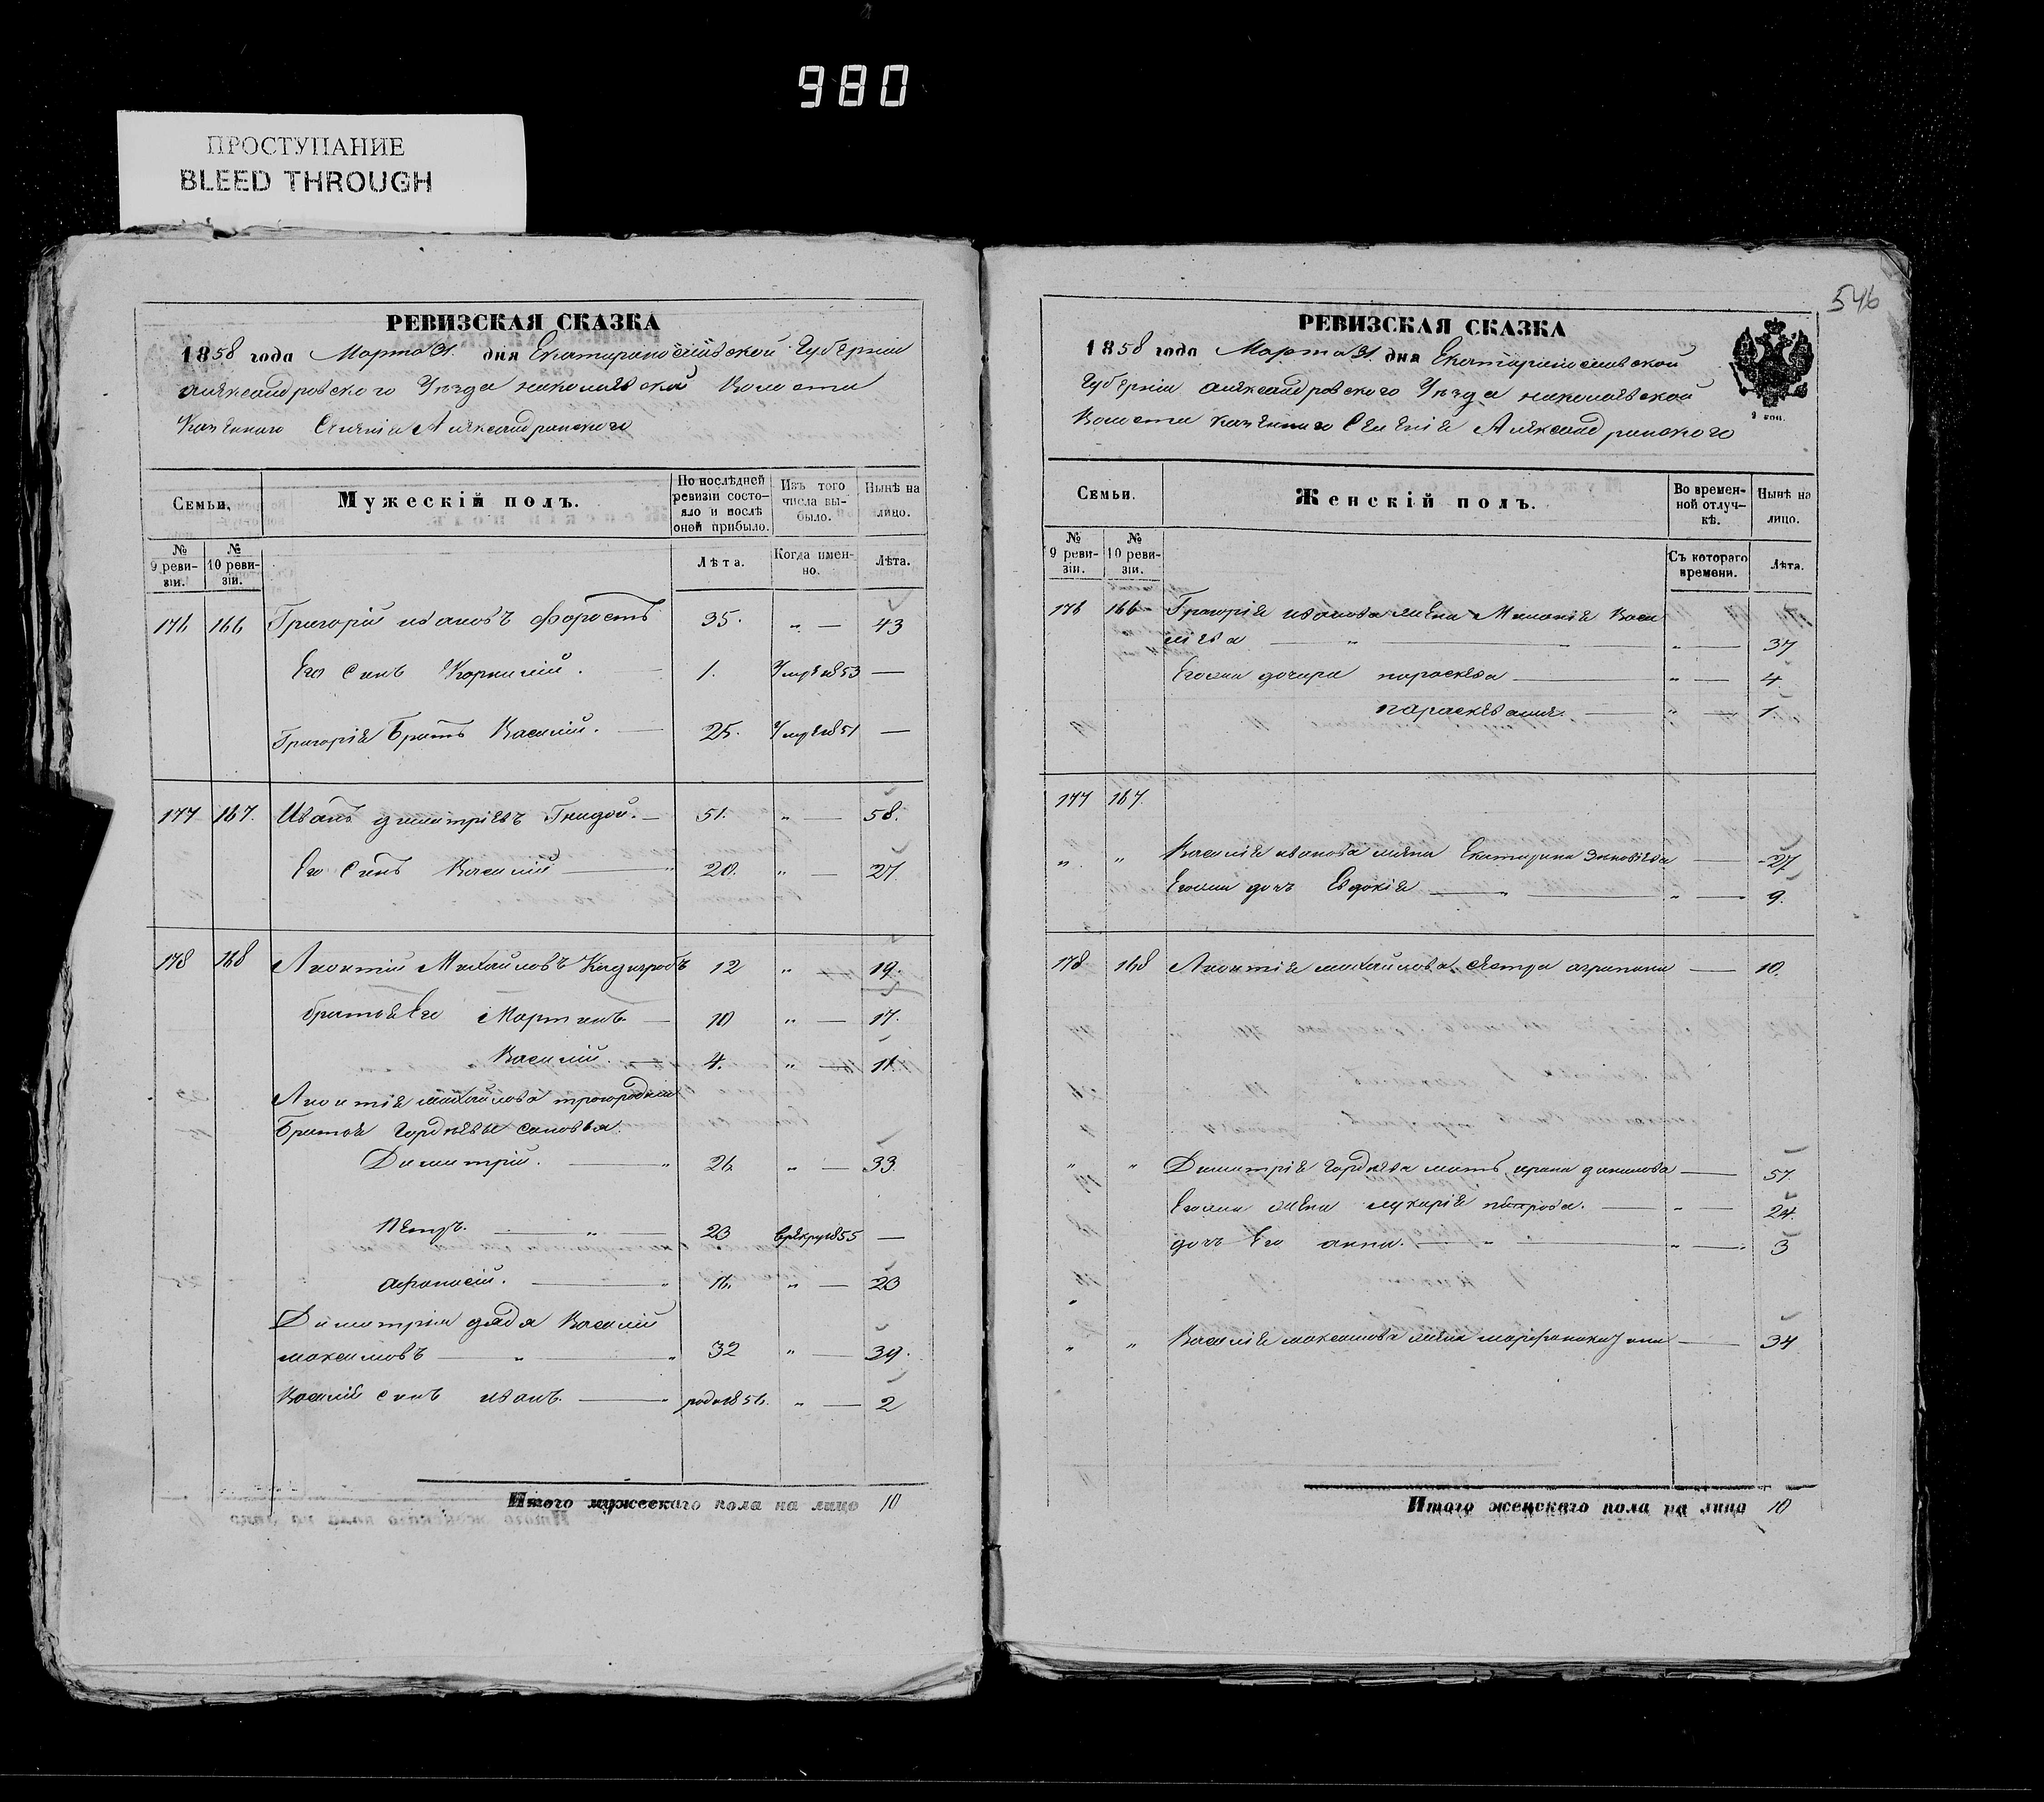 980
ПРОСТУПАНИЕ
BLEED THROUGH
РЕВИЗСКАЯ СКАЗКА
1858 года Марта 31 дня Екатеринославской Губернии
Александровского Уезда николаевской Волости
Казенного Селения Александринского
Семьи.
Мужескій полъ.
По послѣдней ревизіи состояло и послѣ оной прибыло.
Изъ того числа выбыло.
Нынѣ на лицо.
№ 9 ревизіи.
№ 10 ревизіи.
Лѣта.
Когда именно.
Лѣта.
176 166 Григорій ивановъ Форостъ 35. „ — 43
Его Сынъ Корнилій. 1. Умре 1853 —
Григорія Братъ Василій. 25. Умре 1851 —
177 167. Иванъ дмитріевъ Гнидой. 51. „ — 58.
Его Сынъ Василій 20. „ — 27
178 168 Леонтій Михайловъ 12 „ 19.
братья Его Мартинъ 10 „ — 17.
Василій. 4. „ — 11.
Леонтія михайлова троюродніи
Братья Гордѣевы Сыновья.
Димитрій. 26 „ — 33.
Петръ. „ 23 1855 —
афанасій. 16. „ — 23
Димитрія дядя Василій
максимовъ „ 32 „ — 39.
Василія сынъ иванъ. роди 1856. „ — 2
Итого мужескаго пола на лицо 10
546
РЕВИЗСКАЯ СКАЗКА
1858 года Марта 31 дня Екатеринославской
Губерніи александровского Уезда николаевской
Волости казенного Селенія Александринского
2 коп.
Семьи.
Женскій полъ.
Во временной отлучкѣ.
Нынѣ на лицо.
№ 9 ревизіи.
№ 10 ревизіи.
Съ котораго времени.
Лѣта.
176 166 Григорія иванова жена Маланія Васи
лѣва „ „ — 37
Егожи дочери параскева „ — 4
„ — 1.
177 167.
„ „ Василія иванова жена Екатерина Зиновіева — 27
Егожи дочъ Евдокія „ „ — 9.
178 168 Леонтія михайлова Сястра агрипина — 10.
„ „ Димитрія Гордѣева мать ирина данилова — 57.
Егожи жена лукирія петрова. „ — 24.
дочъ Его анна. „ „ — 3
„ „ Василія максимова жена — 34
Итого женскаго пола на лицо 10